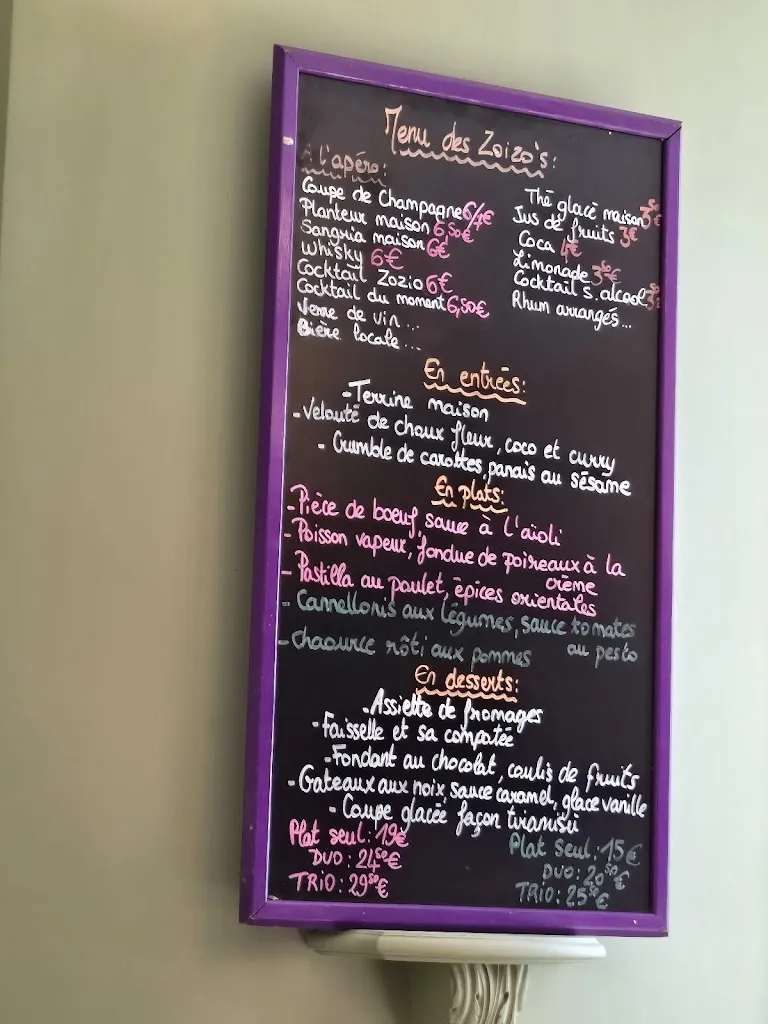 Menu des Zoizo's:
A l'apéro:
Coupe de Champagne
Planteur maison 6,50€
Sangria maison 6€
Whisky 6€
Cocktail Zozio 6€
Cocktail du moment 6,50€
Verre de vin...
Bière locale...
Thé glacé maison 3⁵⁰€
Jus de fruits 3€
Coca 4€
Limonade 3⁵⁰€
Cocktail s. alcool
Rhum arrangés...
En entrées:
- Terrine maison
- Velouté de choux fleur, coco et curry
- Crumble de carottes, panais au sésame
En plats:
- Pièce de boeuf, sauce à l'aïoli
- Poisson vapeur, fondue de poireaux à la
crème
- Pastilla au poulet, èpices orientales
- Cannellonis aux légumes, sauce tomates
au pesto
- chaource rôti aux pommes
En desserts:
- Assiette de fromages
- Faisselle et sa compotée
- Fondant au chocolat, coulis de fruits
- Gateaux aux noix, sauce caramel, glace vanille
- Coupe glacée façon tiramisu
Plat seul: 19€
DUO: 24⁵⁰€
TRIO: 29⁵⁰€
Plat seul: 15€
DUO: 20⁵⁰€
TRIO: 25⁵⁰€